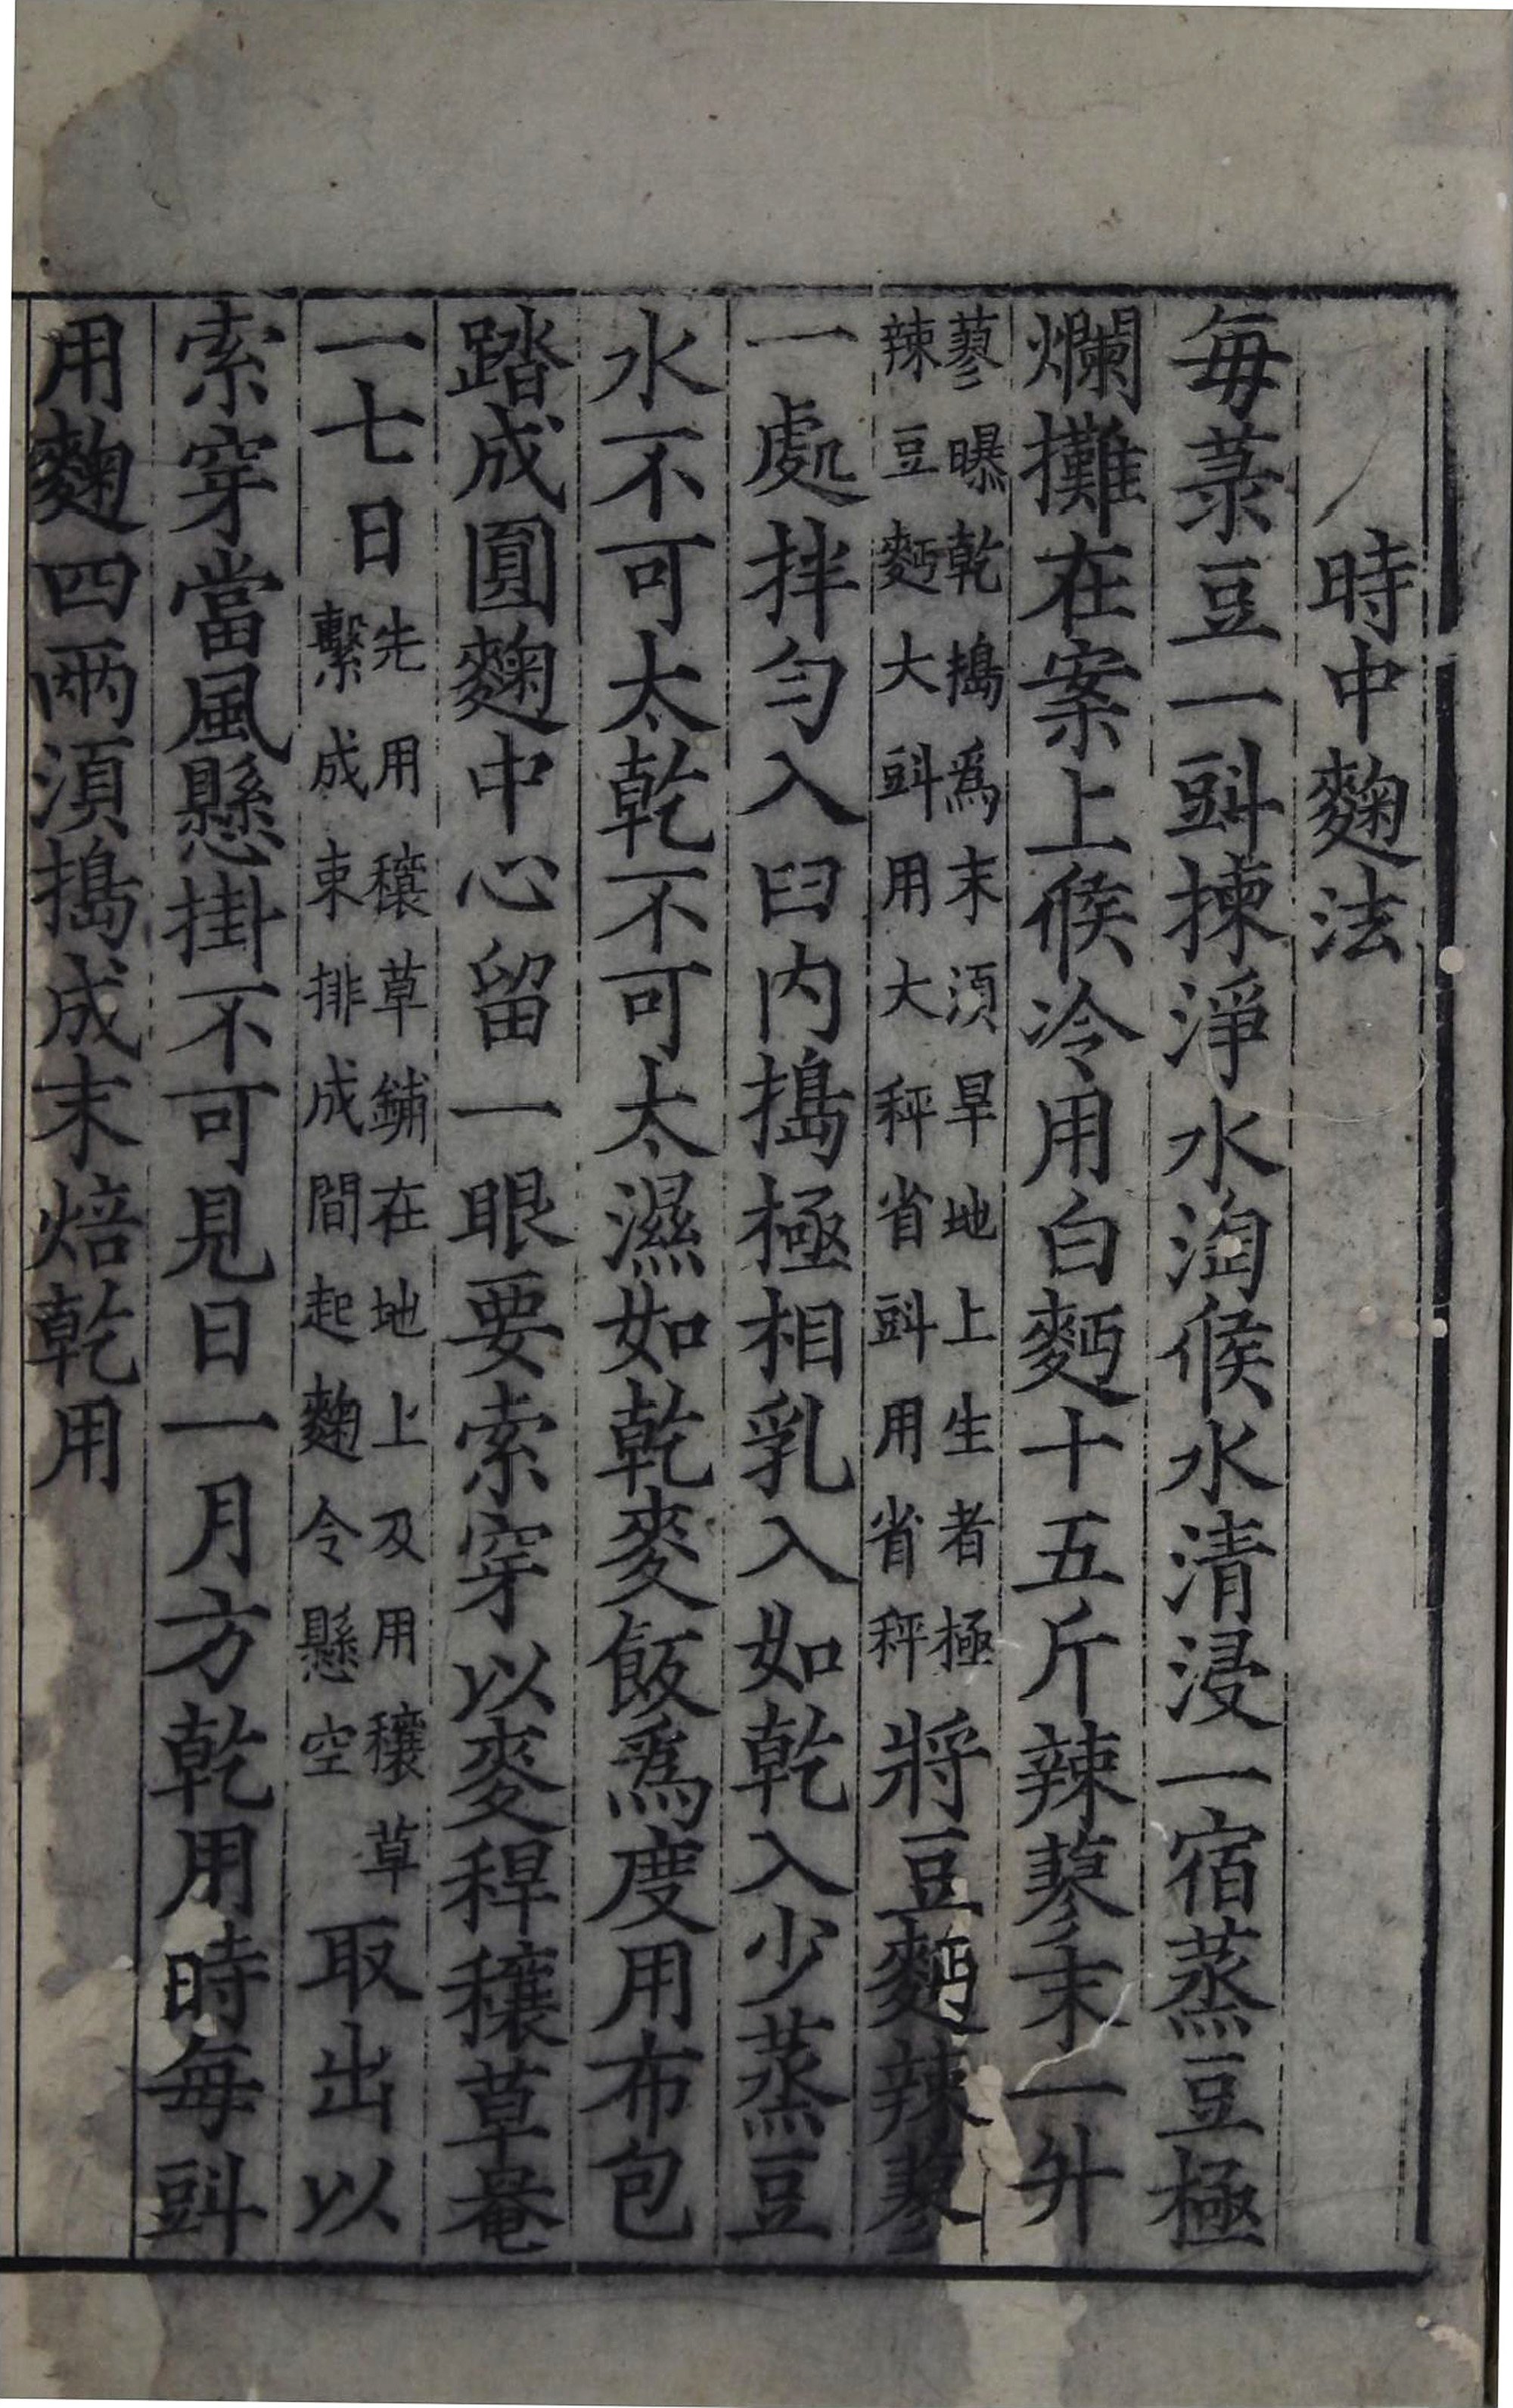 時中麴法
每菉豆一㪷揀淨水淘候水清浸一宿蒸豆極
爛攤在案上候冷用白麪十五斤辣蓼末一升
蓼曝乾搗爲末須旱地上生者極
辣豆麪大㪷用大秤省㪷用省秤
將豆麪辣蓼
一處拌匀入臼内搗極相乳入如乾入少蒸豆
水不可太乾不可太濕如乾麥飯爲度用布包
踏成圓麴中心留一眼要索穿以麥稈穰草罨
一七日
先用穰草鋪在地上及用穰草
繫成束排成間起麴令懸空
取出以
索穿當風懸掛不可見日一月方乾用時每㪷
用麴四兩須搗成末焙乾用